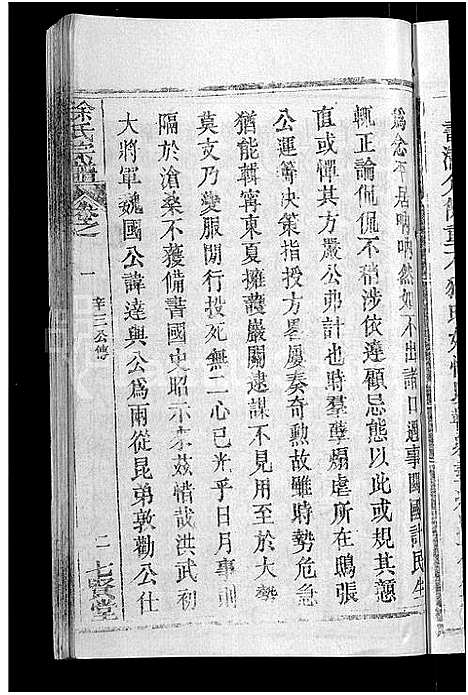 爲念平居吶吶然如不出諸口遇事關國計民生
輒正論侃侃不稍涉依違顧忌態以此或規其戇
直或憚其方嚴公弗計也時羣孽煽虐所在鴟張
公運籌決策指授方畧屢奏奇勲故雖時勢危急
猶能輯寧東夏擁護巖關逮謀不見用至於大勢
莫支乃變服間行投死無二心已光乎日月事則
隔於滄桑不獲備書國史昭示來茲惜哉洪武初
大將軍魏國公諱達與公爲兩從昆弟敦勸公仕
徐氏宗譜 卷之一 辛三公傳 二 七賢堂